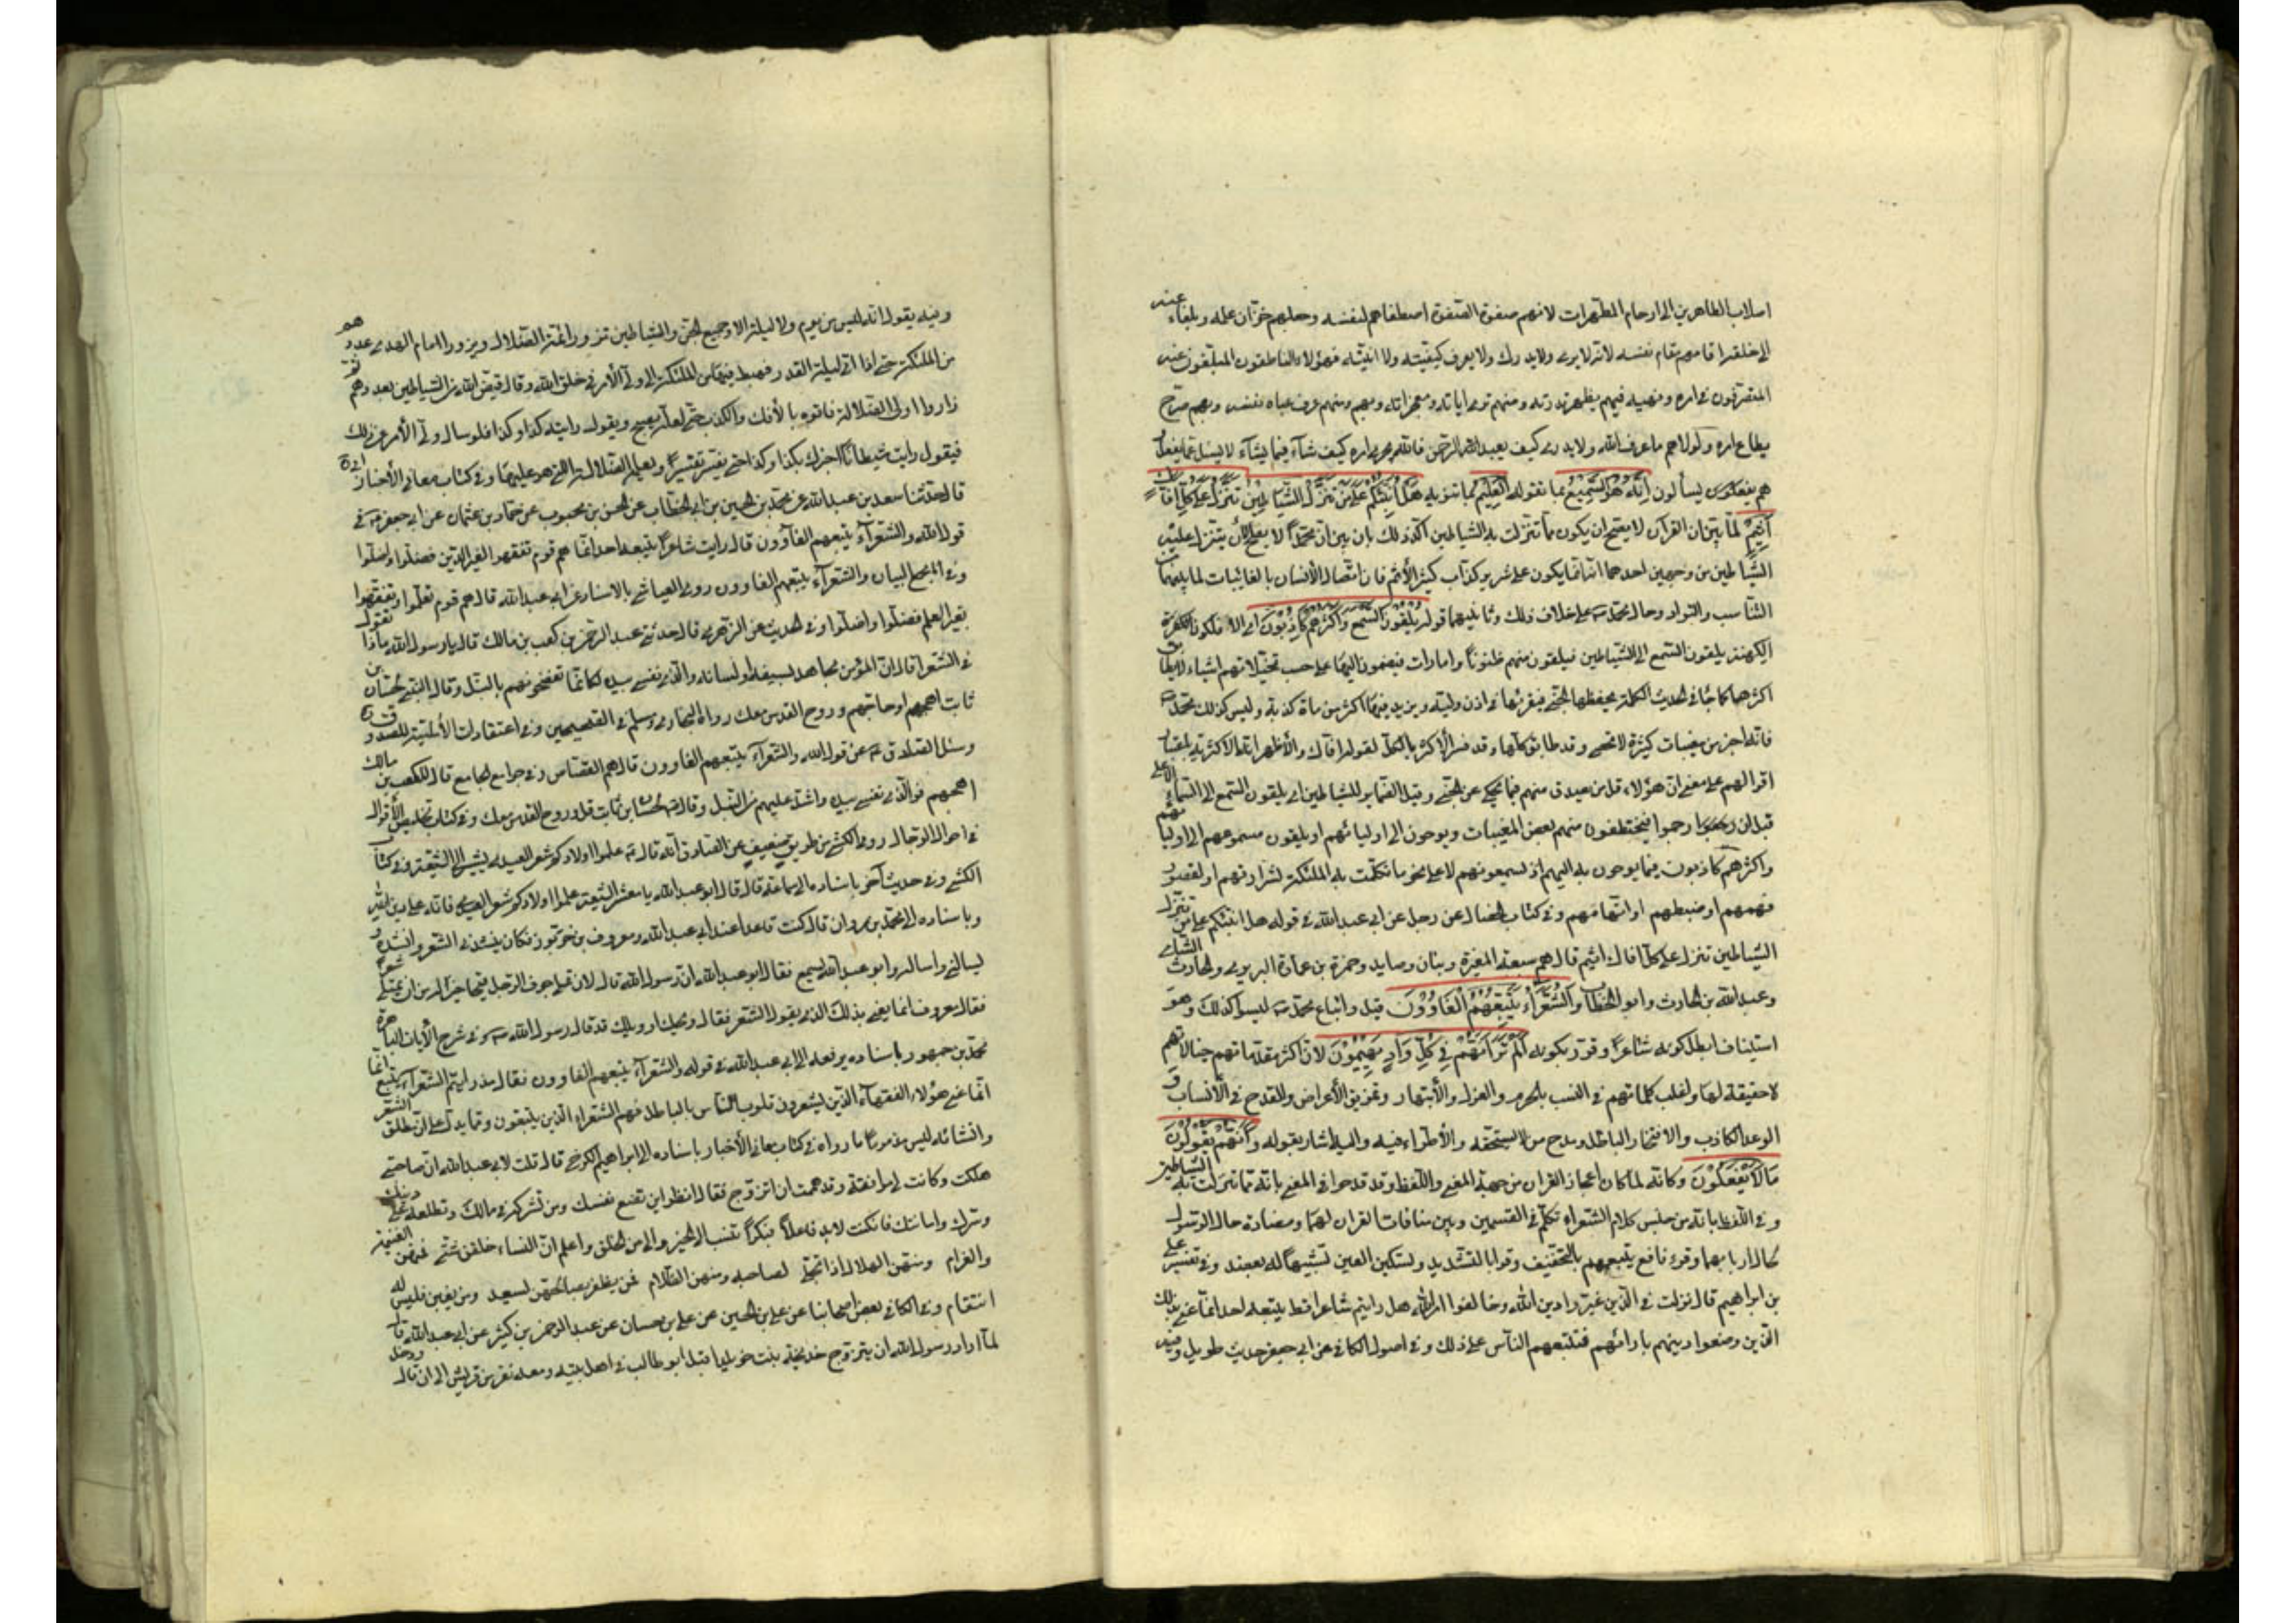 اسلاب الطاهرين الى ارحام المطهرات لانهم صفوة الصفوة اصطفاهم لنفسه وجعلهم خزان علمه وبلغاء عنه
الى خلقه اقامهم مقام نفسه لانه لا يرى ولا يدرك ولا يعرف كيفيته ولا انيته فهؤلاء الناطقون المبلغون عنه
المتصرفون في امره ونهيه فبهم يظهر قدرته ومنهم ترى اياته ومعجزاته وبهم ومنهم عرف عباده نفسه وبهم
يطاع امره ولولاهم ما عرف الله ولا يدرى كيف يعبد الرحمن فالله يجرى امره كيف شاء فيما يشاء لا يسئل عما يفعل و
هم يسألون اِنَّهُ هُوَ السَّمِيعُ بما تقوله الْعَلِيمُ بما تنويه هَلْ اُنَبِّئُكُمْ عَلى مَنْ تَنَزَّلُ الشَّيَاطِينُ تَنَزَّلُ عَلى كُلِّ اَفَّاكٍ
اَثِيمٍ لما بين ان القران لا يصح ان يكون مما تنزلت به الشياطين اكد ذلك بان بين ان محمدا لا يصلح لان يتنزل عليه
الشياطين من وجهين احدهما انه انما يكون على شرير كذاب كثير الاثم فان اتصال الانسان بالغائبات لما بينهما من
التناسب والتواد وحال محمد ص على خلاف ذلك وثانيهما قوله يُلْقُونَ السَّمْعَ وَاَكْثَرُهُمْ كَاذِبُونَ اى
الكهنة يلقون السمع الى الشياطين فيلقون منهم ظنونا وامارات فيضمون اليها على حسب تخيلاتهم اشياء لا يطابق
اكثرها كما جاء في الحديث الكلمة يحفظها الجنى فيقرئها في اذن وليه ويزيد فيها اكثر من مأة كذبة وليس كذلك محمد ص
فانه اخبر عن مغيبات كثيرة لا تحصى وقد طابق كلها وقد فسر الاكثر بالكل لقوله افاك والاظهر ان الاكثرية باعتبار
اقوالهم على معنى ان هؤلاء قل من يصدق منهم فيما يحكى عن الجنى وقيل الضمائر للشياطين اى يلقون السمع الى الملاء الاعلى
قبل ان رجموا فيختطفون منهم بعض المغيبات ويوحون الى اوليائهم او يلقون مسموعهم الى اوليائهم
واكثرهم كاذبون فيما يوحون به اليهم اذ يسمعونهم لا على نحو ما تكلمت به الملئكة لشرارتهم او لقصور
فهمهم او ضبطهم او افهامهم وفي كتاب الخصال عن رجل عن ابى عبد الله في قوله هل انبئكم على من تنزل
الشياطين تنزل على كل افاك اثيم قال هم سبعة المغيرة وبنان وصايد وحمزة بن عمارة البربرى والحارث الشامى
وعبد الله بن الحارث وابو الخطاب وَالشُّعَرَاءُ يَتَّبِعُهُمُ الْغَاوُونَ قيل واتباع محمد ص ليسوا كذلك وهو
استيناف ابطل كونه شاعرا وقرره بقوله اَلَمْ تَرَ اَنَّهُمْ فِي كُلِّ وَادٍ يَهِيمُونَ لان اكثر مقدماتهم خيالات
لا حقيقة لها واغلب كلماتهم في النسيب بالحرم والغزل والابتهار وتمزيق الاعراض والقدح في الانساب و
الوعد الكاذب والافتخار الباطل ومدح من لا يستحقه والاطراء فيه واليه اشار بقوله وَاَنَّهُمْ يَقُولُونَ
مَا لَا يَفْعَلُونَ وكانه لما كان اعجاز القران من جهة المعنى واللفظ وقد قدحوا في المعنى بانه مما تنزلت به الشياطين
وفي اللفظ بانه من جنس كلام الشعراء تكلم في القسمين وبين منافات القران لهما ومضادة حال الرسول
لحال اربابهما وقرء نافع يتبعهم بالتخفيف وقرء بالتشديد وتسكين العين تشبيها له بعضد وفي تفسير على
بن ابراهيم قال نزلت في الذين غيروا دين الله وخالفوا امر الله هل رايتم شاعرا قط يتبعه احد انما عنى بذلك
الذين وضعوا دينهم بارائهم فتتبعهم الناس على ذلك وفي اصول الكافى عن ابى جعفر حديث طويل وفيه
وفيه يقول انه ليس من يوم ولا ليلة الا وجميع الجن والشياطين تزور ائمة الضلال ويزور امام الهدى عددهم
من الملئكة حتى اذا اتى ليلة القدر فهبط فيها من الملئكة الى ولى الامر خلق الله او قال قيض الله من الشياطين بعددهم ثم
زاروا ولى الضلالة فاتوه بالافك والكذب حتى لعله يصبح ويقول رايت كذا وكذا فلو سال ولى الامر عن ذلك
فيقول رايت شيطانا اخبرك بكذا وكذا حتى يفسر تفسيرا ويعلم الضلالة التى هو عليها وفي كتاب معانى الاخبار ابى ره
قال حدثنا سعد بن عبد الله عن محمد بن الحسين بن ابى الخطاب عن الحسن بن محبوب عن حماد بن عثمان عن ابى جعفر في
قول الله والشعراء يتبعهم الغاوون قال رايت شاعرا يتبعه احد انما هم قوم تفقهوا لغير الدين فضلوا واضلوا
وفي مجمع البيان والشعراء يتبعهم الغاوون روى العياشى بالاسناد عن ابى عبد الله قال هم قوم تعلموا وتفقهوا
بغير العلم فضلوا واضلوا وفي الحديث عن الزهرى قال حدثنى عبد الرحمن بن كعب بن مالك قال يا رسول الله ماذا تقول
في الشعراء قال ان المؤمن مجاهد بسيفه ولسانه والذى نفسى بيده لكانما تنضحونهم بالنبل وقال النبى لحسان بن
ثابت اهجهم او هاجهم وروح القدس معك رواه البخارى ومسلم في الصحيحين وفي اعتقادات الامامية للصدوق ره
وسئل الصادق ع عن قول الله والشعراء يتبعهم الغاوون قال هم القصاص وفي جوامع الجامع قال لكعب بن مالك
اهجهم فوالذى نفسى بيده لهو اشد عليهم من النبل وقال لحسان بن ثابت قل وروح القدس معك وفي كتاب تلخيص الاقوال
في احوال الرجال روى الكشى من طريق ضعيف عن الصادق انه قال علموا اولادكم شعر العبدى يشير الى الشيعة وفي كتاب
الكشى وفي حديث آخر باسناده الى سماعة قال قال ابو عبد الله يا معشر الشيعة علموا اولادكم شعر العبدى فانه على دين الله
وباسناده الى محمد بن مروان قال كنت قاعدا عند ابى عبد الله ومعروف بن خربوذ فكان ينشدنى الشعر وانشده و
يسالنى واساله وابو عبد الله يسمع فقال ابو عبد الله ان رسول الله قال لان يمتلى جوف الرجل قيحا خير له من ان يمتلى شعرا
فقال معروف انما يعنى بذلك الذى يقول الشعر فقال ويحك او ويلك قد قال رسول الله ص وفي شرح الايات الباهرة
محمد بن جمهور باسناده يرفعه الى ابى عبد الله في قوله والشعراء يتبعهم الغاوون فقال من رايتم الشعراء يتبع انما
انما عنى هؤلاء الفقهاء الذين يشعرون قلوب الناس بالباطل فهم الشعراء الذين يتبعون ومما يدل على ان مطلق الشعر
وانشائه ليس مذموما ما رواه في كتاب معانى الاخبار باسناده الى ابراهيم الكرخى قال قلت لابى عبد الله ان صاحبتى
هلكت وكانت لى موافقة وقد هممت ان اتزوج فقال انظر اين تضع نفسك ومن تشركه في مالك وتطلعه على دينك
وسرك وامانتك فان كنت لابد فاعلا فبكرا تنسب الى الخير والى حسن الخلق واعلم ان النساء خلقن شتى فمنهن الغنيمة
والغرام ومنهن الهلال اذا تجلى لصاحبه ومنهن الظلام فمن يظفر بصالحهن يسعد ومن يغبن فليس له
انتقام وفي الكافى بعض اصحابنا عن على بن الحسين عن على بن حسان عن عبد الرحمن بن كثير عن ابى عبد الله قال
لما اراد رسول الله ان يتزوج خديجة بنت خويلد اقبل ابو طالب في اهل بيته ومعه نفر من قريش الى ان قال ودخل